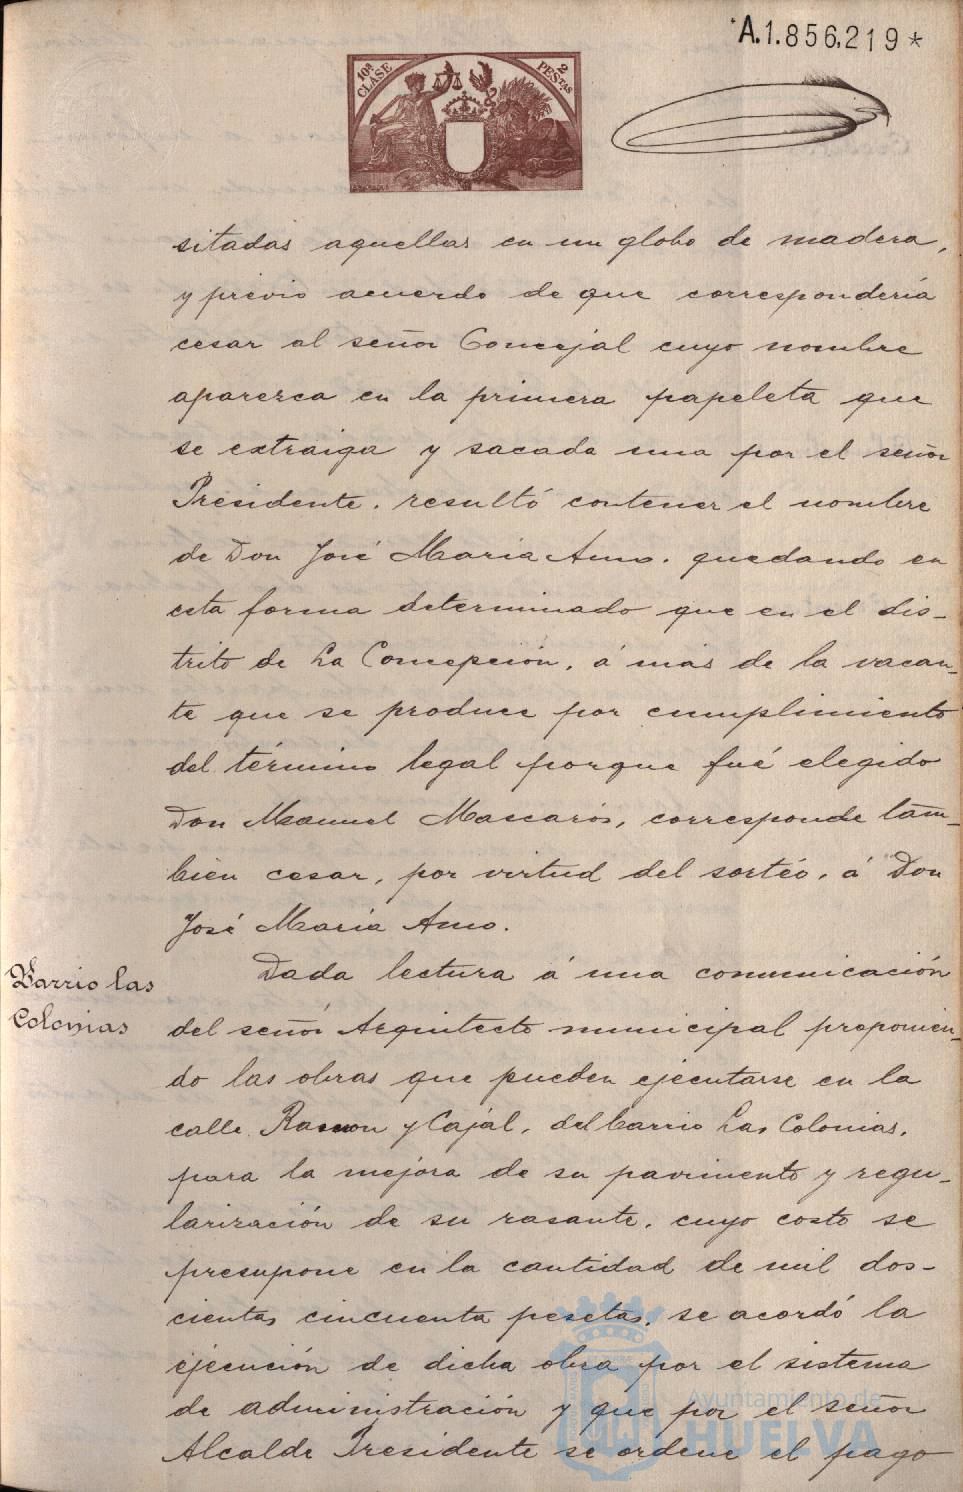 A.1.856.219*
10ª CLASE
2 PESTAS
sitadas aquellas en un globo de madera,
y previo acuerdo de que correspondería
cesar al señor Concejal cuyo nombre
aparezca en la primera papeleta que
se extraiga y sacada una por el señor
Presidente, resultó contener el nombre
de Don José María Amo, quedando en
esta forma determinado que en el dis-
trito de La Concepción, á más de la vacan-
te que se produce por cumplimiento
del término legal porque fué elegido
Don Manuel Mascarós, corresponde tam-
bien cesar, por virtud del sortéo, á Don
José María Amo.
Barrio las
Colonias
Dada lectura á una comunicación
del señor Arquitecto municipal proponien-
do las obras que pueden ejecutarse en la
calle Ramon y Cajál, del barrio Las Colonias,
para la mejora de su pavimento y regu-
larización de su rasante, cuyo costo se
presupone en la cantidad de mil dos-
cientas cincuenta pesetas, se acordó la
ejecución de dicha obra por el sistema
de administración y que por el señor
Alcalde Presidente se ordene el pago
Ayuntamiento de
HUELVA